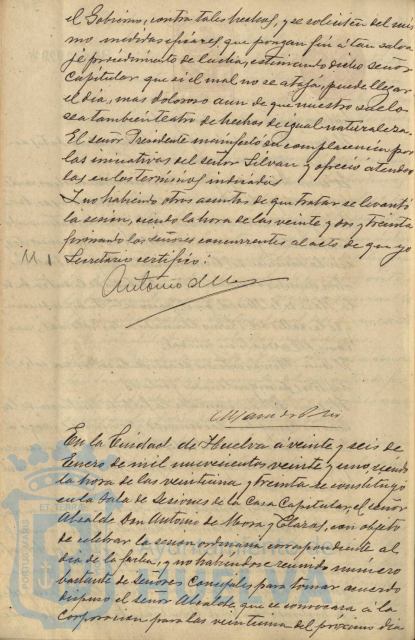 el Gobierno, contra tales hechos, y se soliciten del mis
mo medidas eficaces, que pongan fin á tan salva
je procedimiento de lucha, estimando dicho señor
Capitular que si el mal no se ataja, puede llegar
el dia, mas doloroso aun de que nuestro suelo
sea tambien teatro de hechos de igual naturaleza.
El señor Presidente manifestó su complacencia por
las iniciativas del señor Silvan y ofreció atender
las en los terminos indicados
Y no habiendo otros asuntos de que tratar se levantó
la sesion, siendo la hora de las veinte y dos y treinta
firmando los señores concurrentes al acto de que yo
Secretario certifico:
Antonio de Mora
En la Ciudad de Huelva á veinte y seis de
Enero de mil novecientos veinte y uno, siendo
la hora de las veintiuna y treinta se constituyó
en la Sala de Sesiones de la Casa Capitular, el señor
Alcalde Don Antonio de Mora y Claros, con objeto
de celebrar la sesion ordinaria correspondiente al
dia de la fecha, y no habiendose reunido número
bastante de señores Concejales para tomar acuerdo
dispuso el señor Alcalde, que se convocara á la
Corporacion para las veintiuna del proximo dia